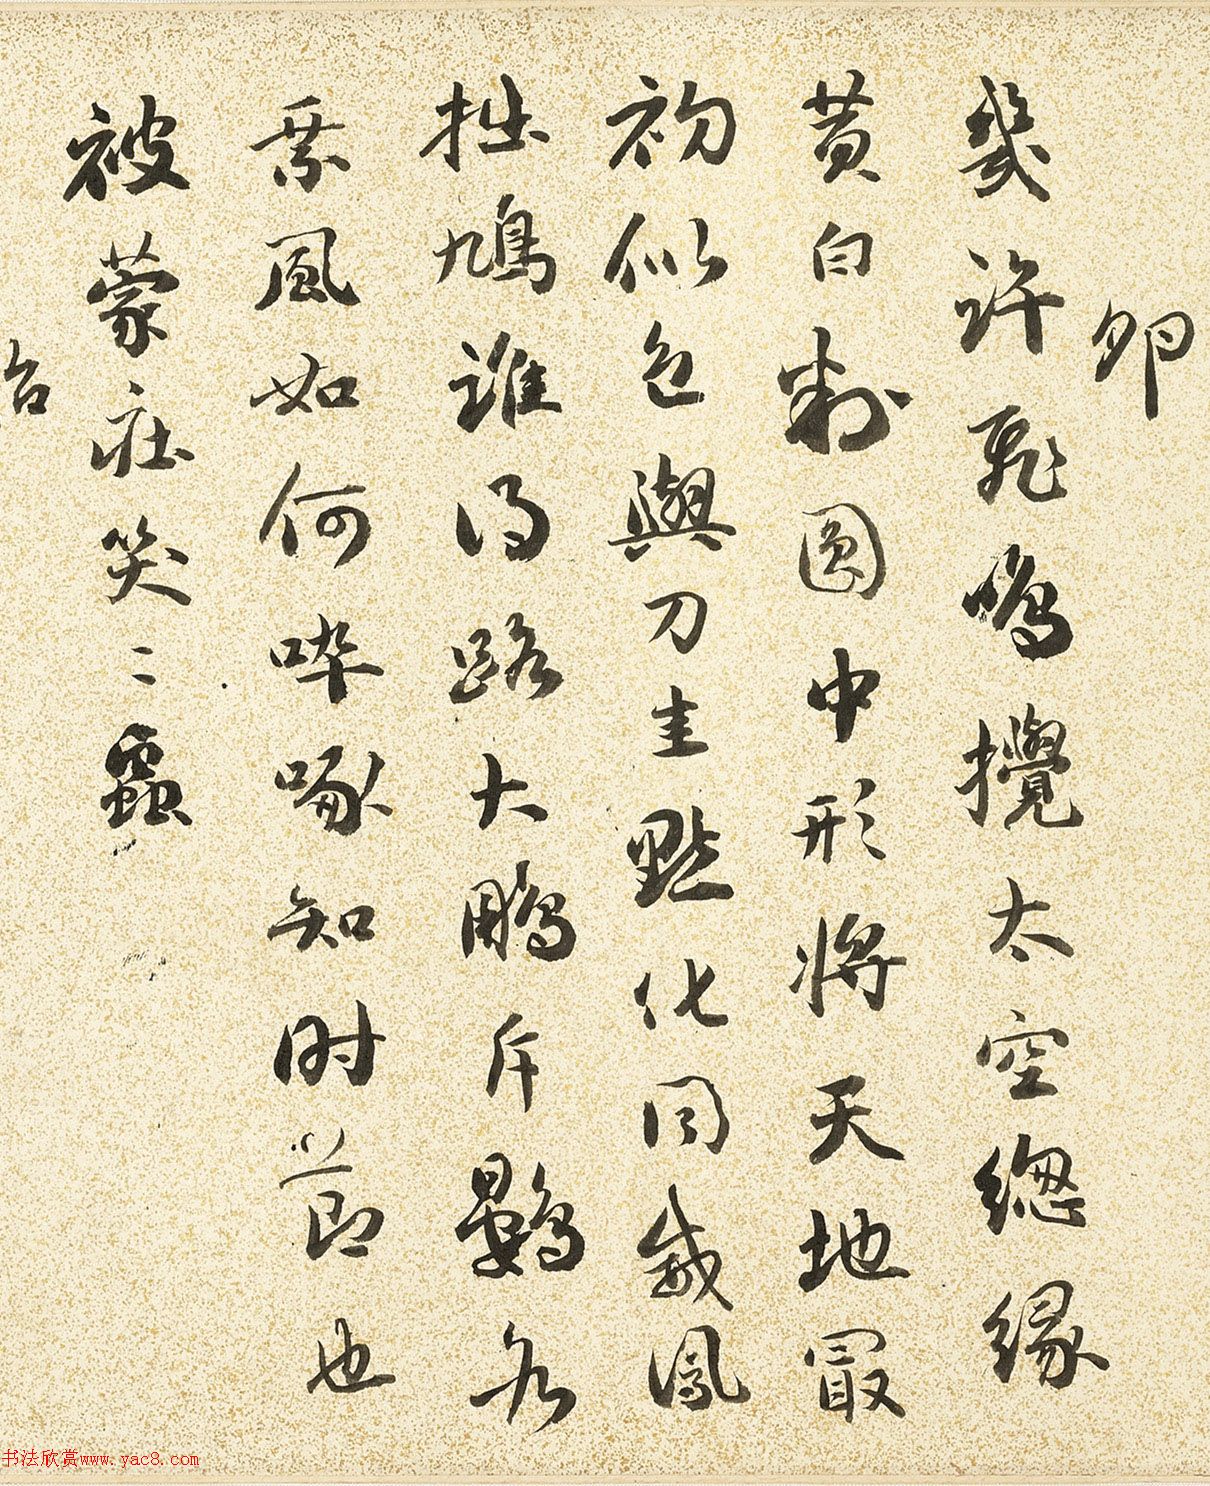 卵
幾許飛鳴攪太空總緣
黄白判圓中形將天地最
初似色與刀圭點化同威鳳
拙鳩誰得路大鵬斥鷃各
乘風如何啐啄知時節也
被蒙庄笑二蟲
台
书法欣赏www.yac8.com